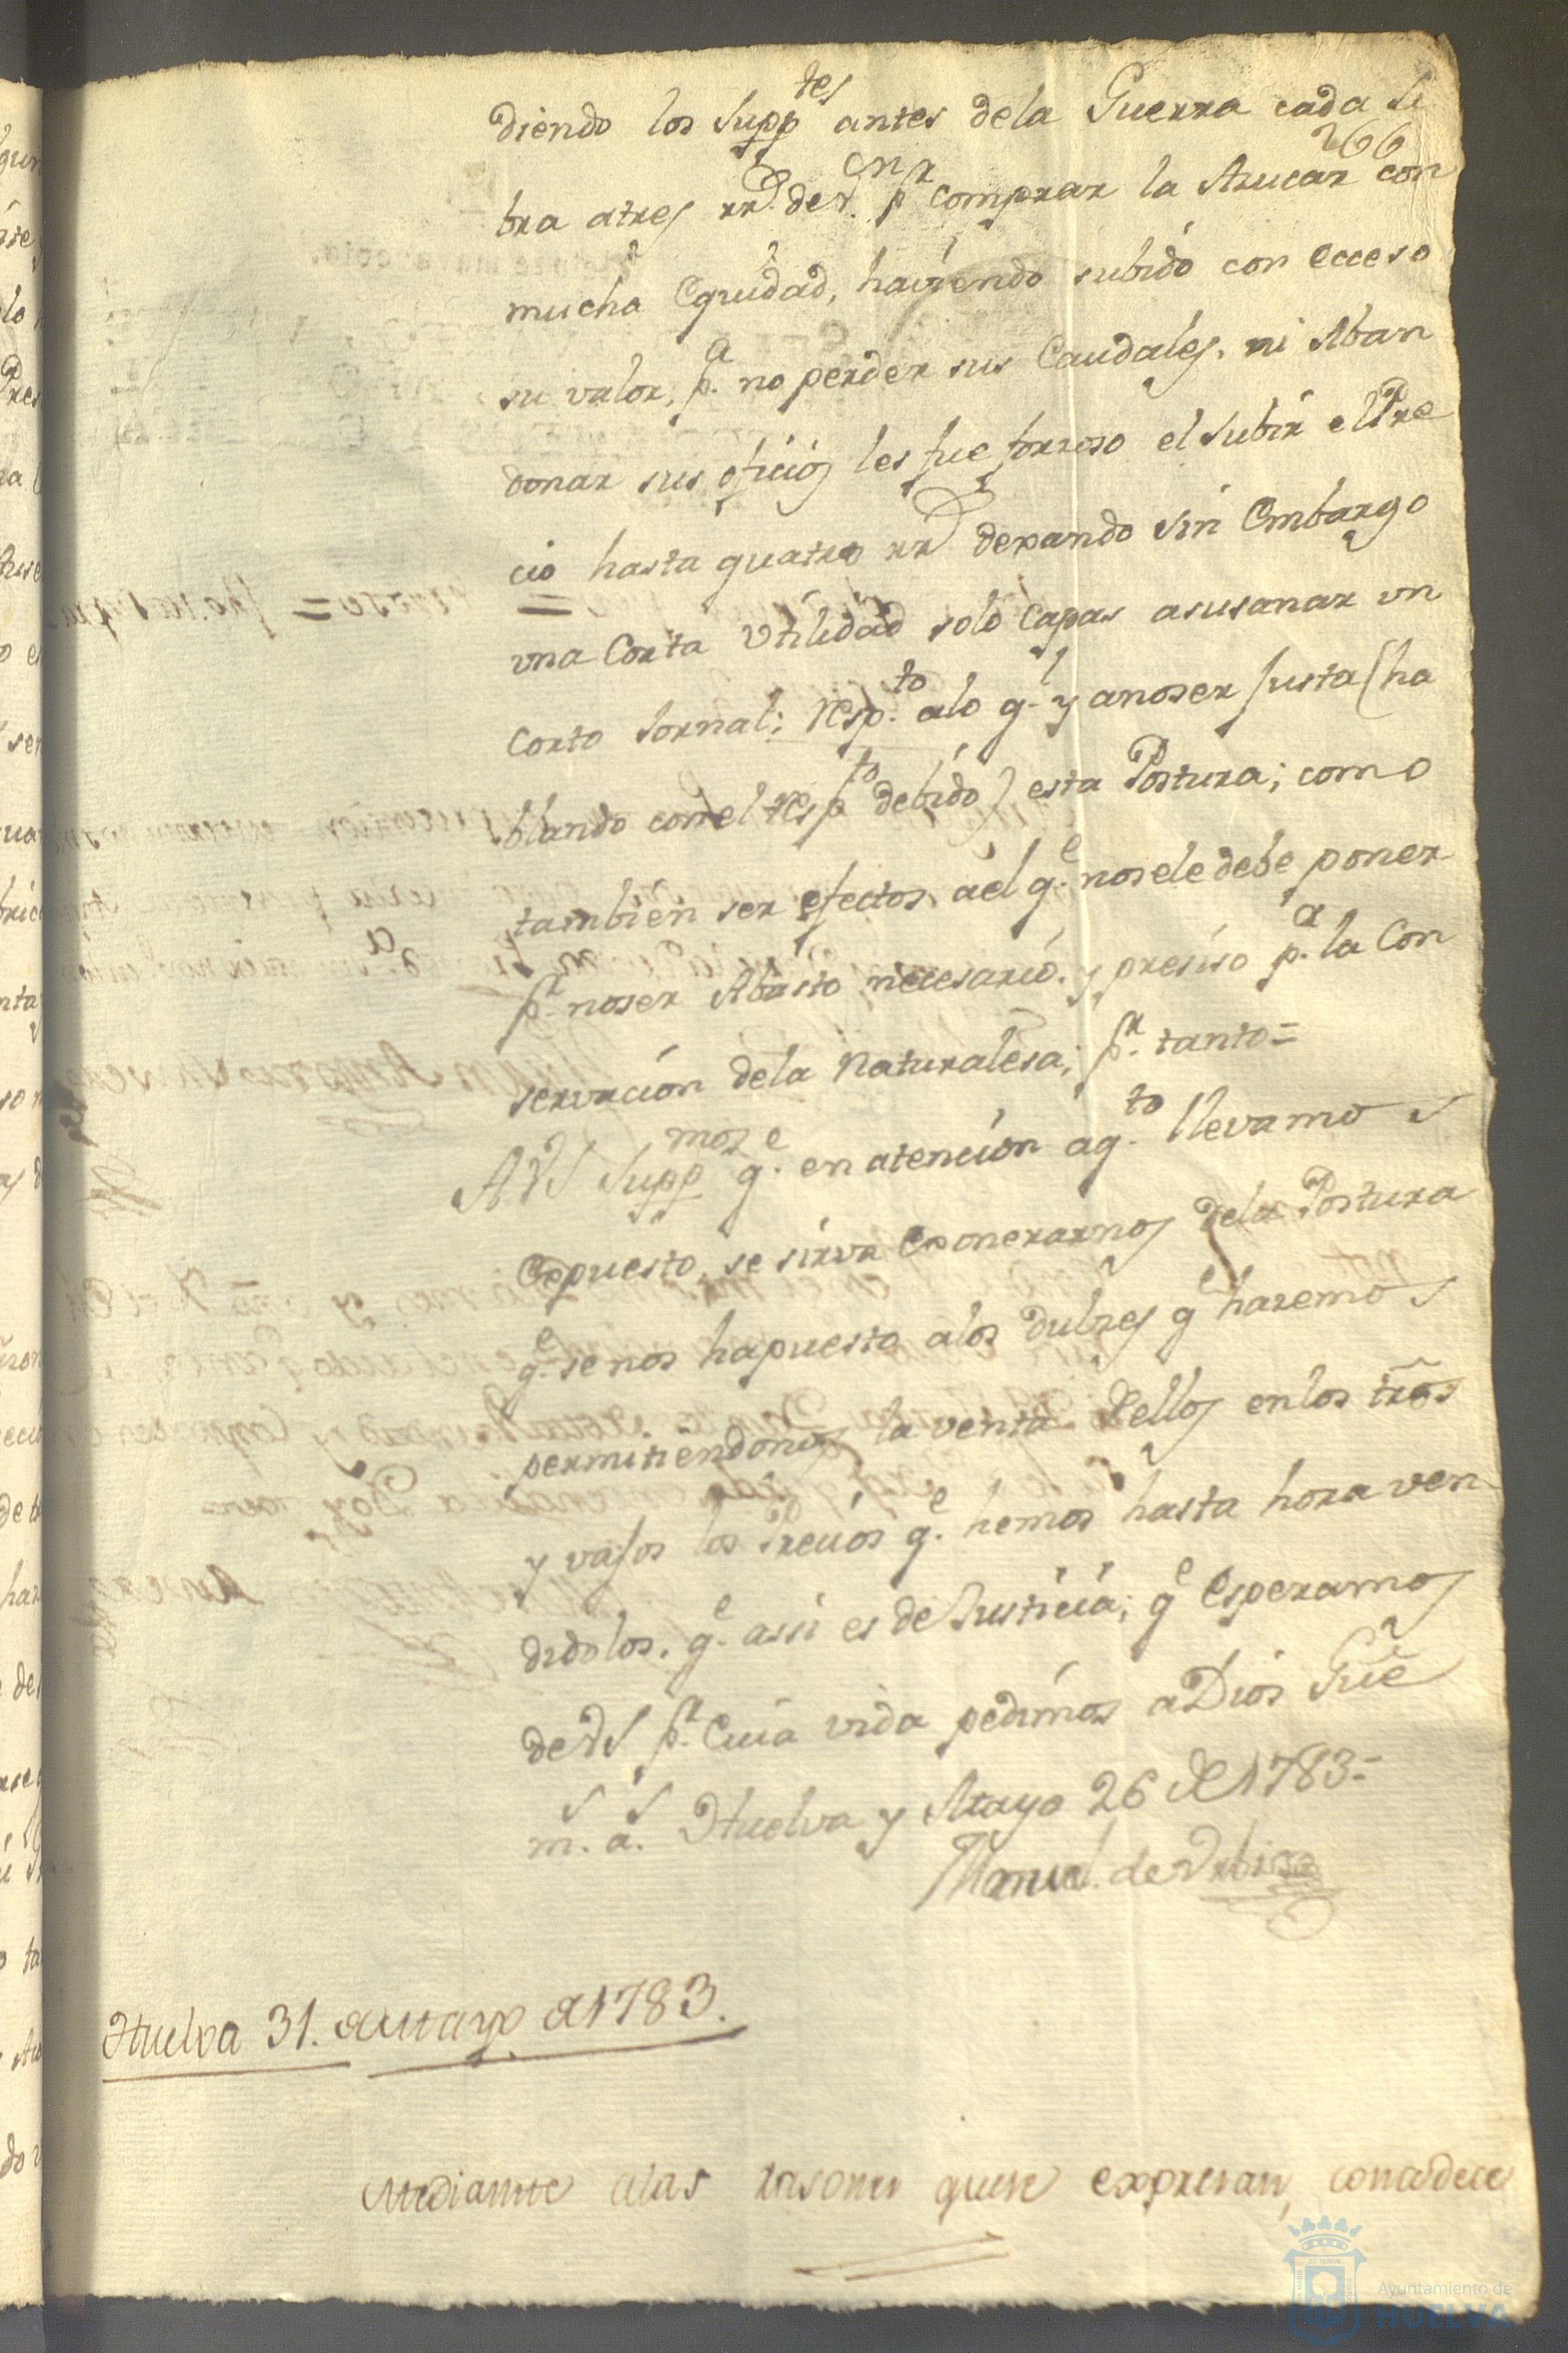 diendo los Supp.tes antes dela Guerra cada li
266
bra atres rr.s de v.n p.r comprar la Azucar con
mucha Equidad, haviendo subido con ecceso
su valor, p.a no perder sus Caudales, ni Aban
donar sus oficios les fue forzoso el subir el Pre
cio hasta quatro rr.s dexando sin Embargo
una Corta Utilidad solo Capas asusanar un
Corto Jornal; resp.to alo q.l y anoser Justa (ha
blando con el resp.to debido) esta Postura; como
tambien ser efectos, ael q.e nosele debe poner
p.r noser Abasto necesario, y presiso p.a la Con
servacion dela Naturalesa; p.r tanto=
AVS Supp.mos q.e en atencion aq.to llevamos
Expuesto, se sirva Exonerarnos dela Postura
q.e se nos hapuesto alos dulzes q.e haremos
permitiendonos la venta dellos enlos trños
y vajos los Precios q.e hemos hasta hora ven
didolos. q.e assi es de Justicia; q.e Esperamos
de VS p.r Cuia vida pedimos a Dios Gue
m.s a.s Huelva y Mayo 26 de 1783=
Manuel de Urbina
Huelva 31. de Mayo de 1783.
Mediante alas rasones que se expresan, concedece
Ayuntamiento de
HUELVA